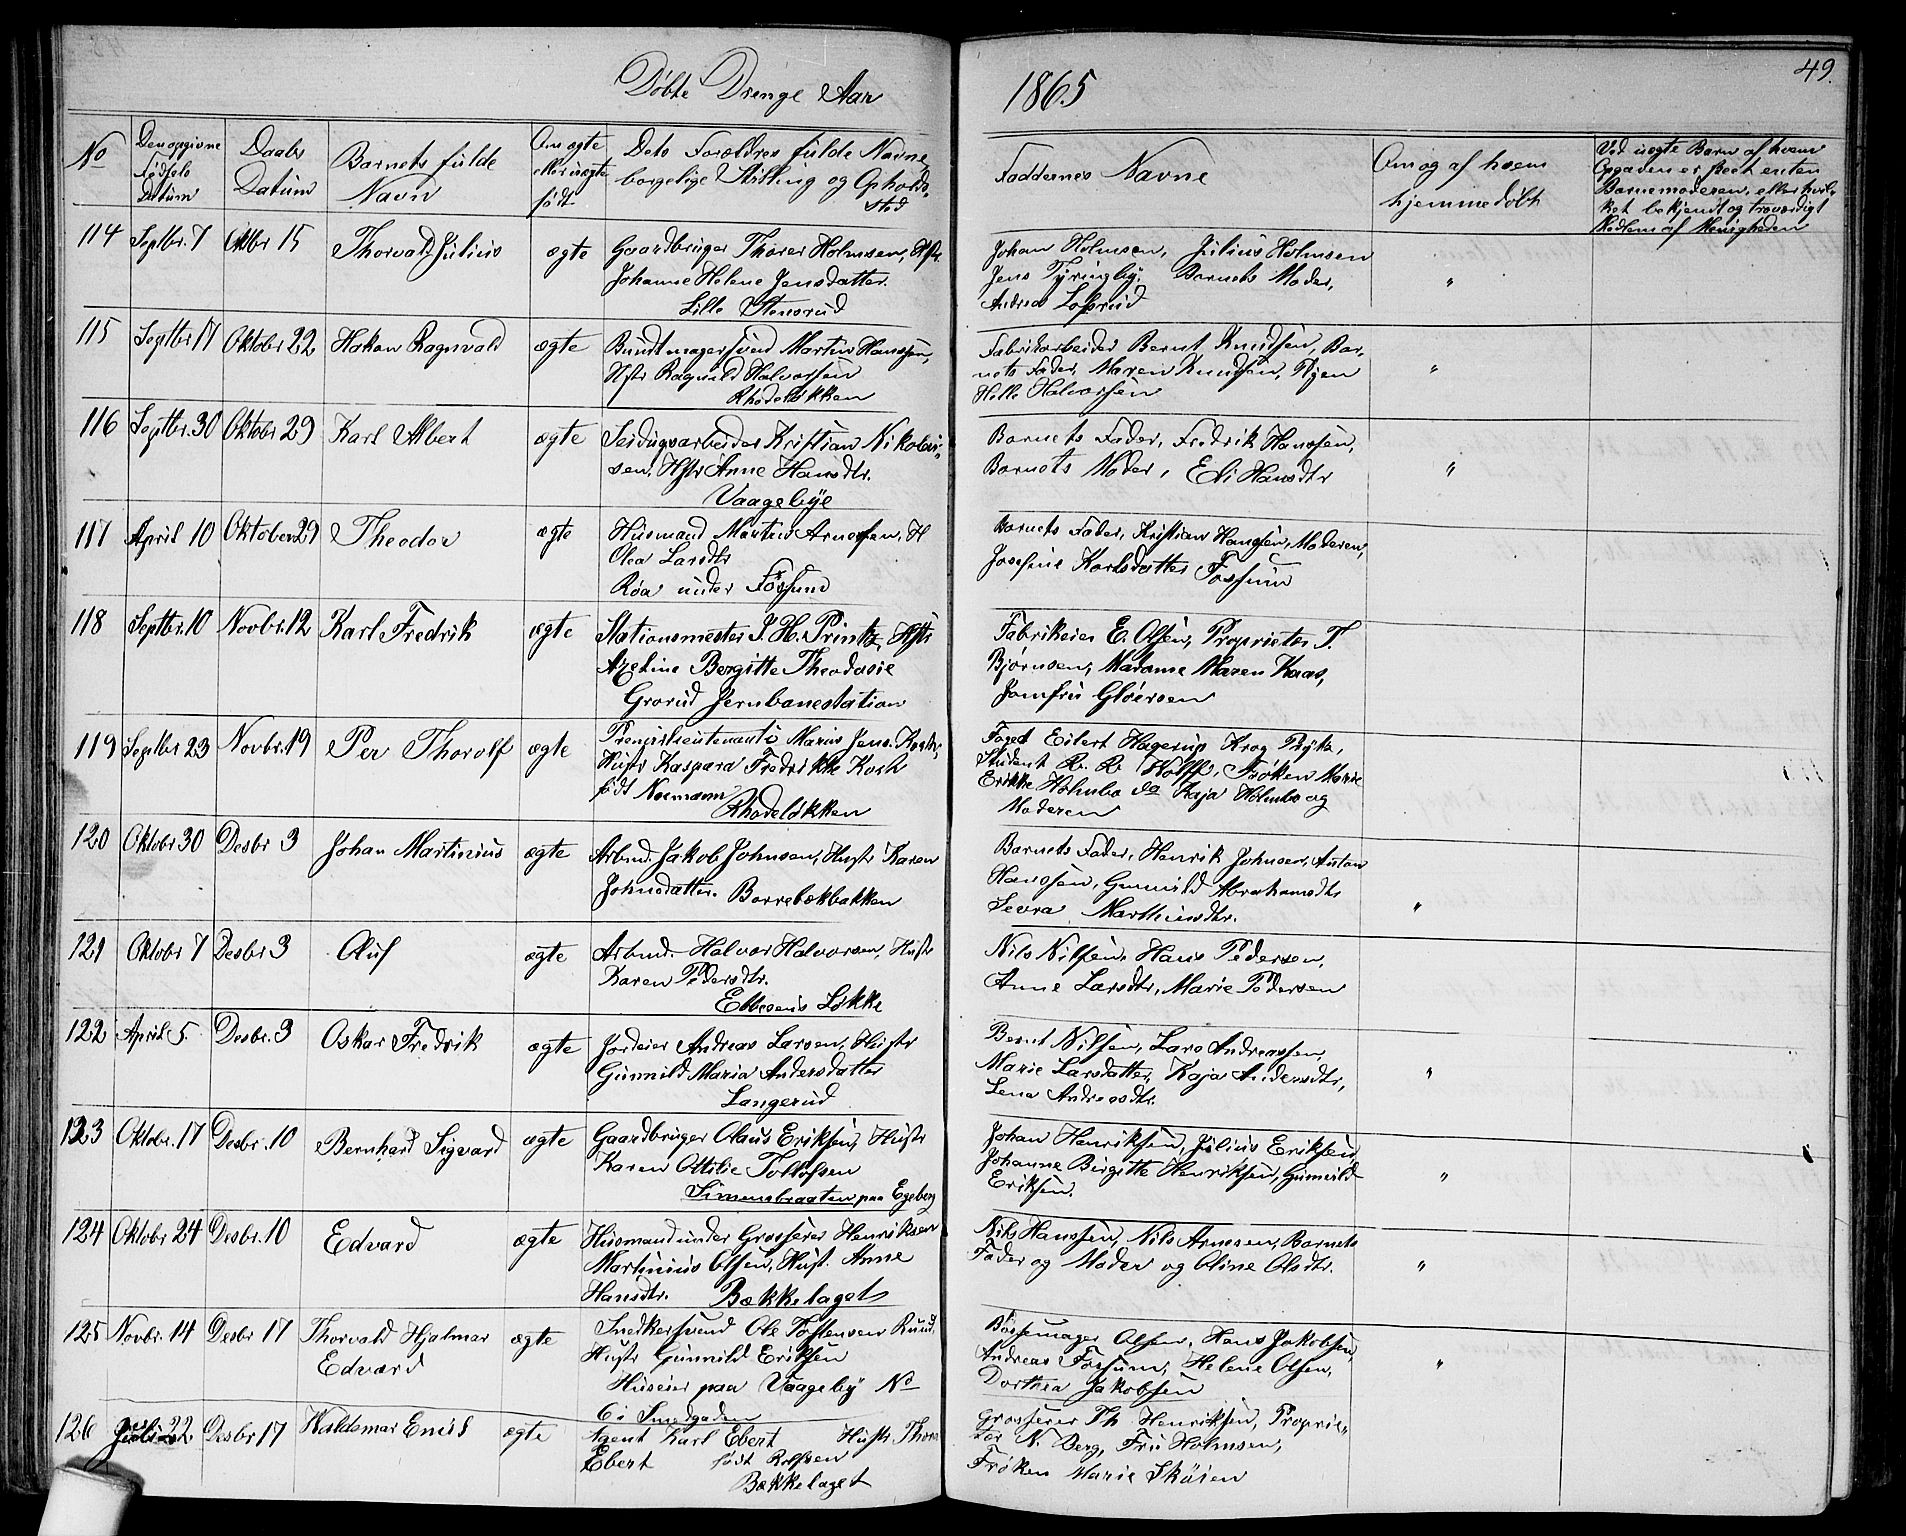 Døbte Drenge Aar
1865
49.
No
Den opgivne Fødsels Datum
Daabs Datum
Barnets fulde Navn
Om ægte eller uægte født
Dets Forældres fulde Navne borgelige Stilling og Opholds-sted
Faddernes Navne
Om og af hvem hjemmedøbt
Ved uægte Barn af hvem Opgaven er skeet enten Barnemoderen, eller hvilket bekjendt og troværdigt Medlem af Menigheden
114 Septbr. 7 Oktbr 15 Thorvald Julius ægte Gaardbruger Thorer Holmsen, Hstr. Johan Holmsen, Julius Holmsen
Johanne Helene Jensdatter. Jens Tyringby, Barnets Moder, "
Lille Stensrud Andreas Lofsrud
115 Septbr 17 Oktobr 22 Hakon Ragnvald ægte Bundtmagersvend Martin Hanssen, Fabrikarbeider Bernt Knudsen, Bar-
Hstr Ragnild Halvorsen nets Fader, Maren Knudsen, Pigen "
Rhodeløkken Helle Halvorsen
116 Septbr. 30 Oktobr 29 Karl Albert ægte Seidugsarbeider Kristian Nikolai- Barnets Fader, Fredrik Hanssen,
sen, Hstr Anne Hansdtr. Barnets Moder, Eli Hansdtr "
Vaagebye
117 April 10 Oktober 29 Theodor ægte Husmand Martin Arnesen, H Barnets Fader, Kristian Hanssen, Moderen,
Olea Larsdtr Josefine Karlsdatter Fossum
Røa under Fossum
118 Septbr. 10 Novbr. 12 Karl Fredrik ægte Stationsmester J. H. Printz, Hstr Fabrikeier E. Olsen, Proprietær T.
Axeline Bergitte Theodosie Bjørnsen, Madame Maren Kaas,
Grorud Jernbanestation Jomfru Gløersen
119 Septbr 23 Novbr. 19 Per Thorolf ægte Premierlieutenant Marius Jens. Koch, Foged Eilert Hagerup Krog Prytz,
Hustr Kaspara Fredrikke Koch Student R. R. Wolff, Frøken Marie
født Normann Erikke Holmbo do Kaja Holmbo og
Rhodeløkken Moderen
120 Oktobr 30 Desbr 3 Johan Martinius ægte Arbmd. Jakob Johnsen, Hustr Karen Barnets Fader, Henrik Johnsen, Anton
Johnsdatter. Borrebækbakken Hanssen, Gunnild Abrahamsdtr "
Sevra Marthinsdtr.
121 Oktobr 7 Desbr 3 Oluf ægte Arbmd. Halvor Halvorsen, Hustr Nils Nilsen, Hans Pedersen,
Karen Pedersdtr. Anne Larsdtr, Marie Pedersen
Ebbesens Løkke
122 April 5. Desbr. 3 Oskar Fredrik ægte Jordeier Andreas Larsen, Hustr Bernt Nilsen, Lars Andreassen,
Gunnild Maria Andersdatter Marie Larsdatter, Kaja Andersdtr, "
Langerud Lena Andreasdtr.
123 Oktobr. 17 Desbr. 10 Bernhard Sigvard ægte Gaardbruger Olaus Eriksen, Hustr Johan Henriksen, Julius Eriksen,
Karen Ottilie Tollofsen Johanne Birgitte Henriksen, Gunnild "
Simensbraaten paa Egeberg Eriksen.
124 Oktobr 24 Desbr. 10 Edvard ægte Husmand under Grosserer Henriksen Nils Hanssen, Nils Arnesen, Barnets
Martinius Olsen, Hust. Anne Fader og Moder og Oline Olsdtr. "
Hansdtr. Bækkelaget
125 Novbr. 14 Desbr 17 Thorvald Hjalmar ægte Snedkersvend Ole Torstensen Ruud, Bøssemager Olsen, Hans Jakobsen,
Edvard Hustr Gunnild Eriksen Andreas Fossum, Helene Olsen, "
Huseier paa Vaageby No Dorthea Jakobsen
6 i Smedgaden
126 Juli 22 Desbr 17 Waldemar Emil ægte Agent Karl Ebert Hustr Thora Grosserer Th Henriksen, Proprie-
Ebert født Rolfsen tær N. Berg, Fru Holmsen,
Bækkelaget Frøken Marie Skøien